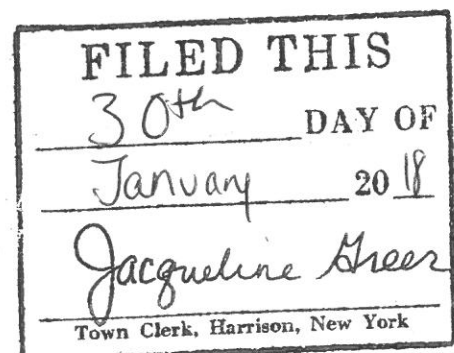 FILED THIS
30th DAY OF
January 2018
Jacqueline Greer
Town Clerk, Harrison, New York